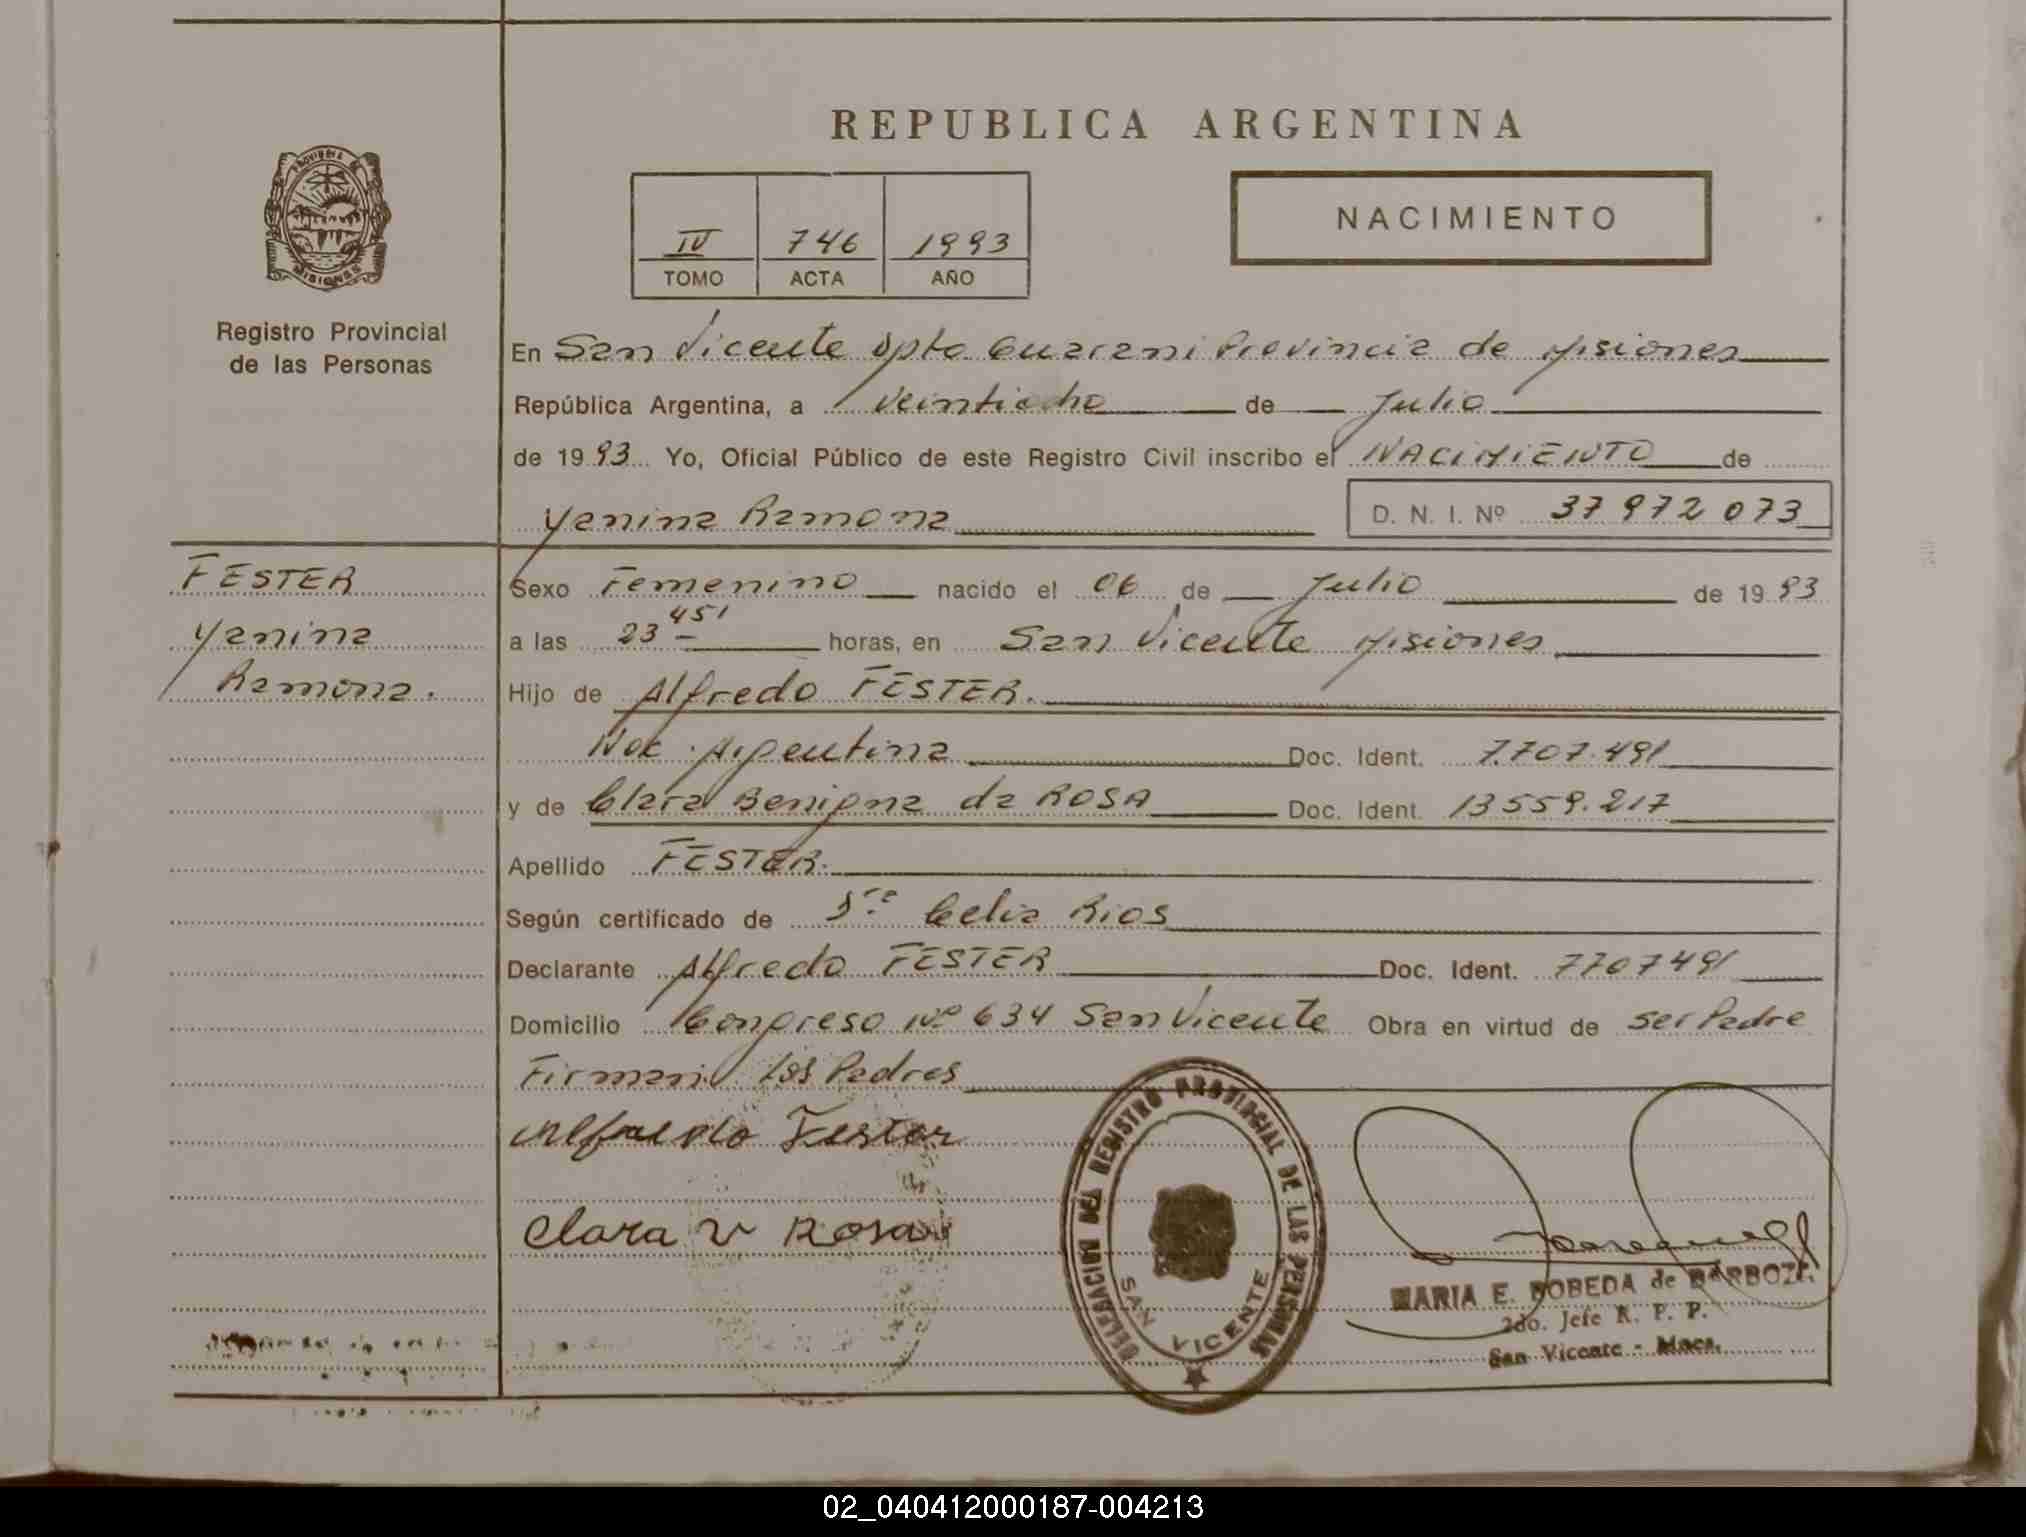 REPUBLICA ARGENTINA
PROVINCIA DE
MISIONES
Registro Provincial
de las Personas
IV 746 1993
TOMO ACTA AÑO
NACIMIENTO
En San Vicente Dpto Guarani Provincia de Misiones
República Argentina, a veintiocho de Julio
de 1993 Yo, Oficial Público de este Registro Civil inscribo el NACIMIENTO de
Yanina Ramona D. N. I. Nº 37 972 073
FESTER
Yanina
Ramona.
Sexo Femenino nacido el 06 de Julio de 1993
a las 23 45' horas, en San Vicente Misiones
Hijo de Alfredo FESTER.
Nac. Argentina Doc. Ident. 7.707.491
y de Clara Benigna da ROSA Doc. Ident. 13559.217
Apellido FESTER.
Según certificado de Dra. Celia Rios
Declarante Alfredo FESTER Doc. Ident. 7707491
Domicilio Congreso Nº 634 San Vicente Obra en virtud de ser Padre
Firman los Padres
Alfredo Fester
Clara v Rosa
DELEGACION DEL REGISTRO PROVINCIAL DE LAS PERSONAS
SAN VICENTE
MARIA E. BOBEDA de BARBOZA
2do. Jefe R. P. P.
San Vicente - Mnes.
02_040412000187-004213